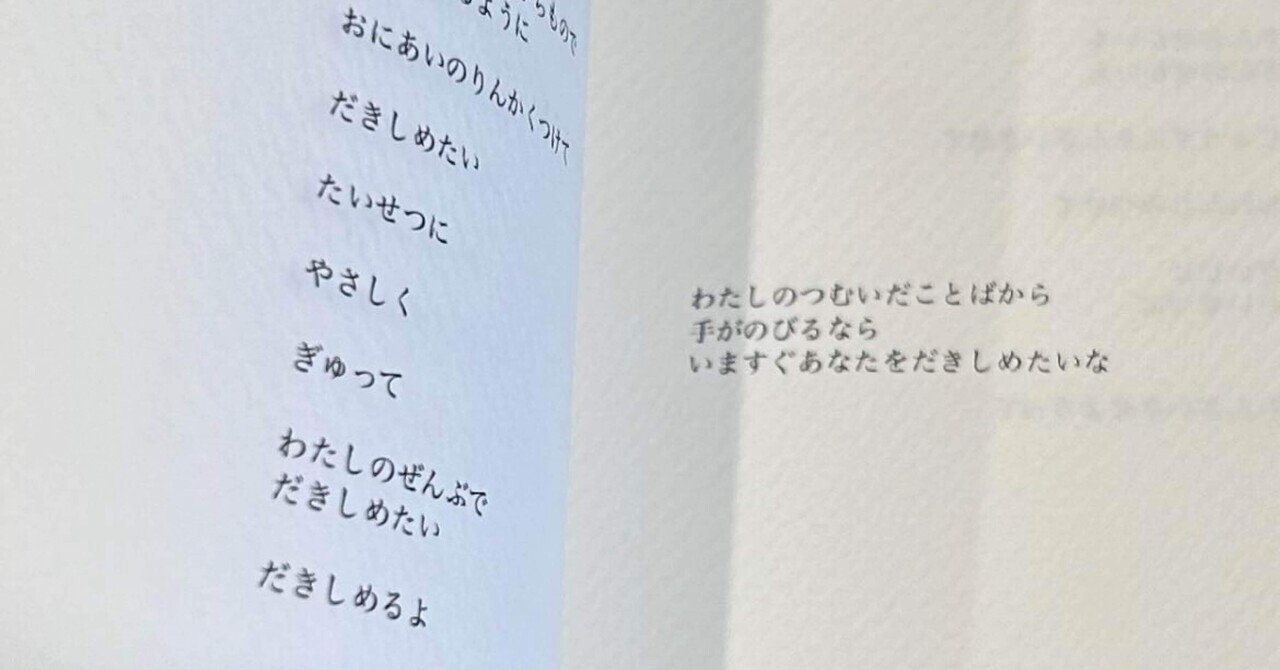 おにあいのりんかくつけて
だきしめたい
たいせつに
やさしく
ぎゅって
わたしのぜんぶで
だきしめたい
だきしめるよ
わたしのつむいだことばから
手がのびるなら
いますぐあなたをだきしめたいな